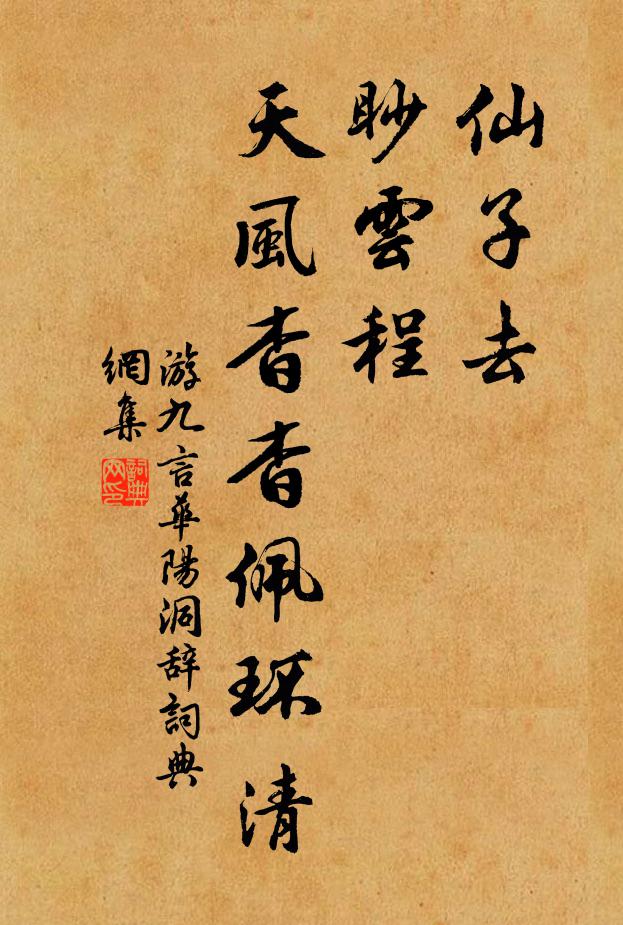 仙子去
眇雲程
天風杳杳佩环清
游九言華陽洞辭詞典
網集
詞典
网印